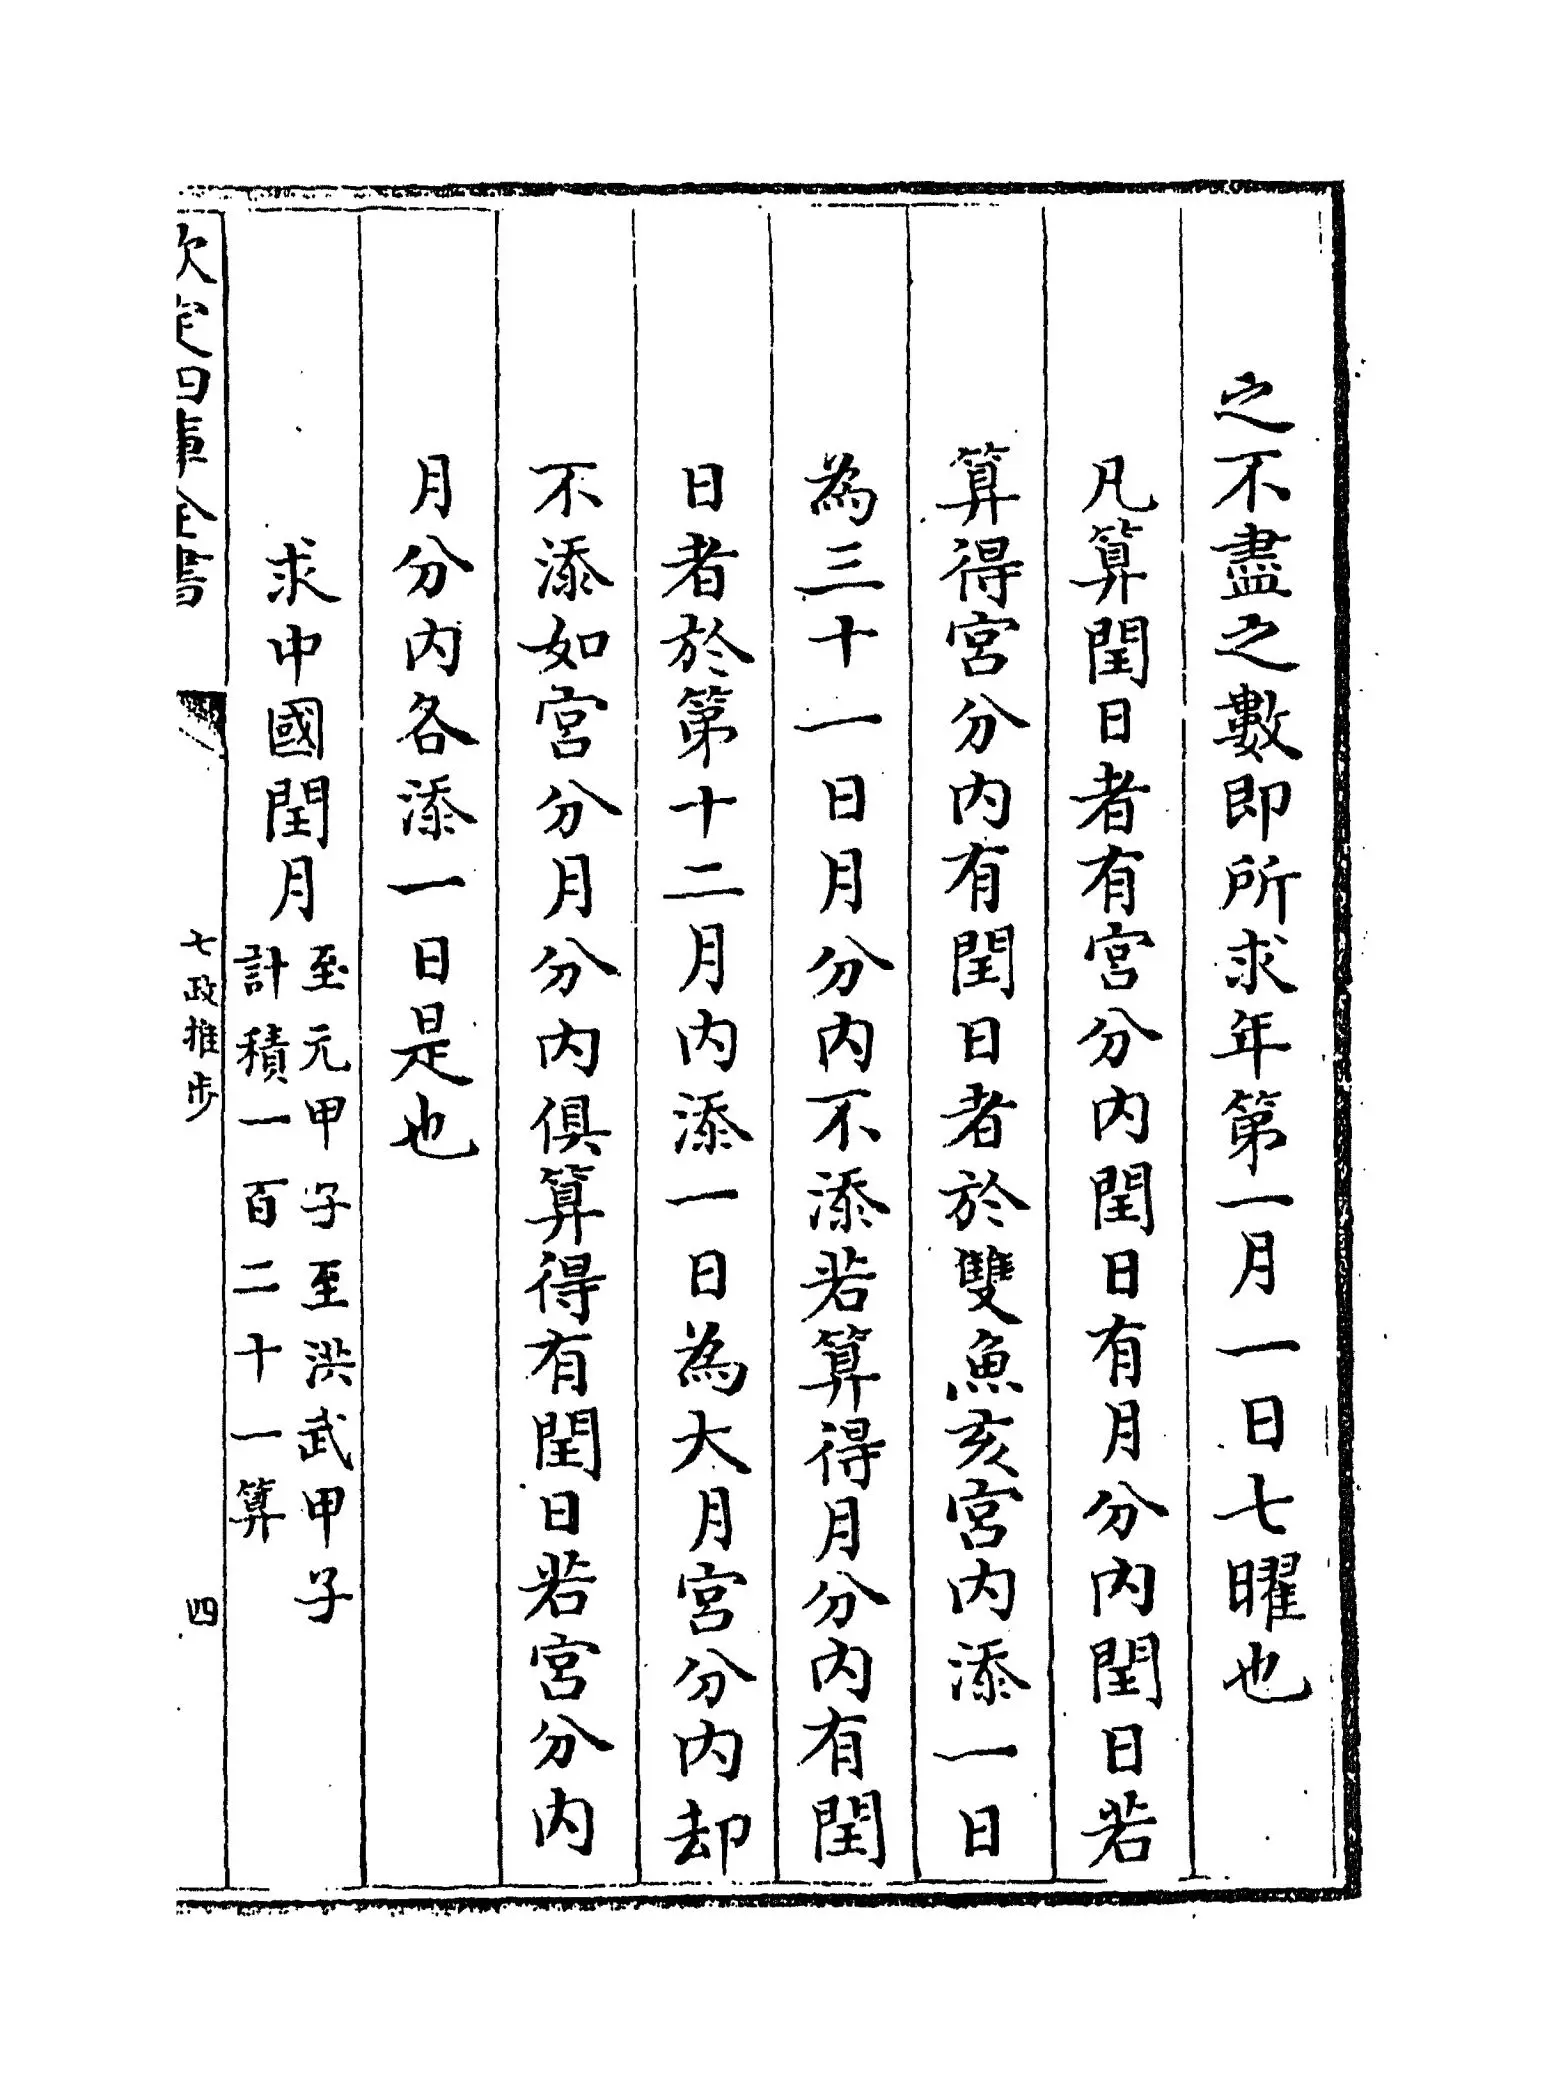 之不盡之數即所求年第一月一日七曜也
凡算閏日者有宮分内閏日有月分内閏日若
算得宮分内有閏日者於雙魚亥宮内添一日
為三十一日月分内不添若算得月分内有閏
日者於第十二月内添一日為大月宮分内却
不添如宮分月分内俱算得有閏日若宮分内
月分内各添一日是也
求中國閏月
至元甲子至洪武甲子
計積一百二十一算
欽定四庫全書
七政推步
四